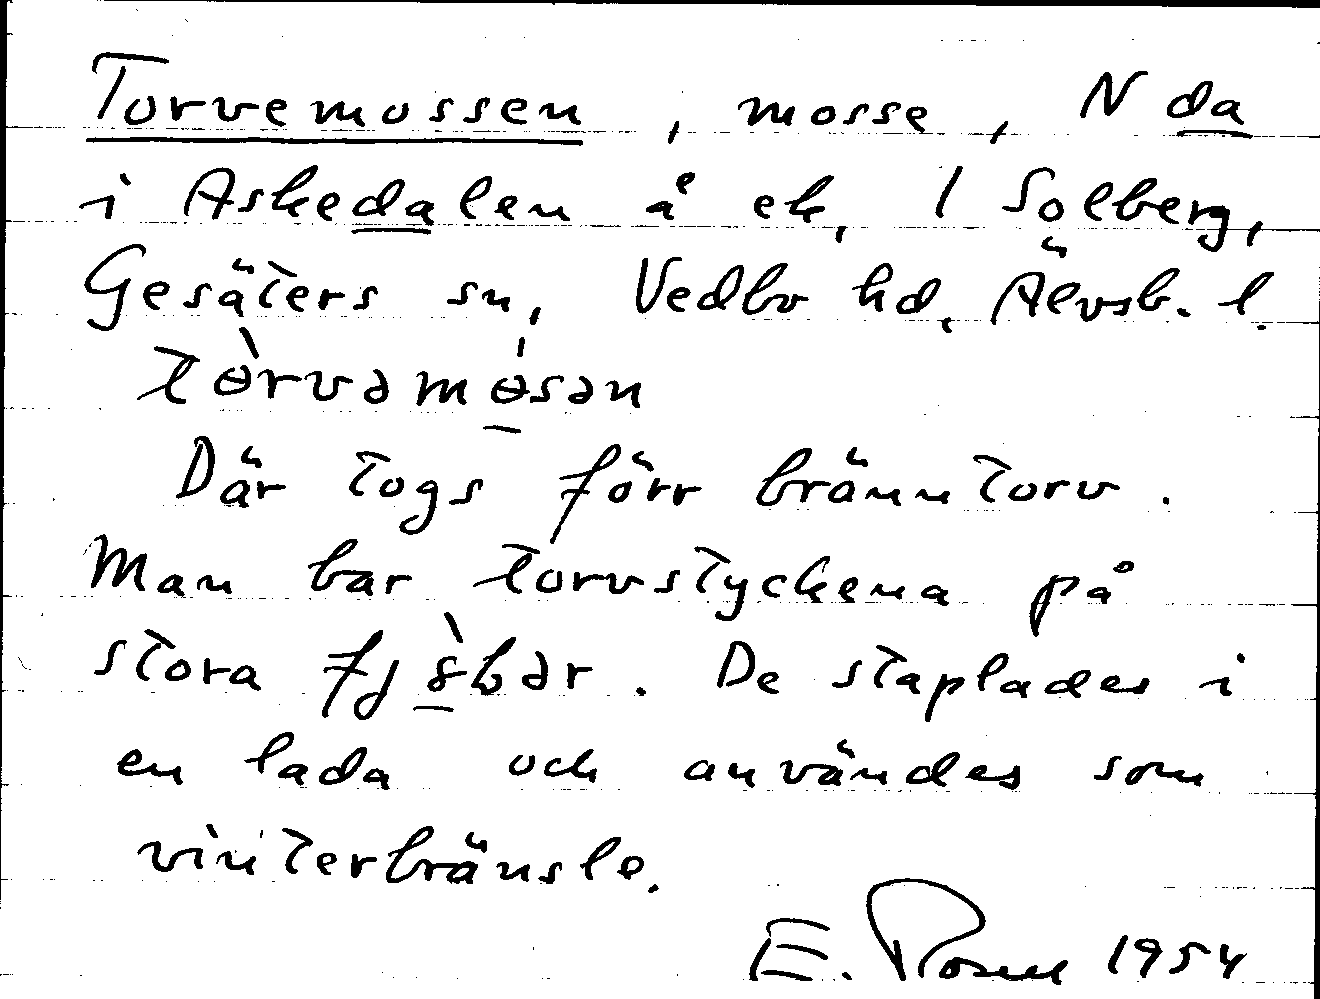 Torvemossen, mosse, N da
i Askedalen å ek. 1 Solberg,
Gesäters sn, Vedbo hd, Älvsb. l.
tɵ̀rvəmɵ̍sən
Där togs förr bränntorv.
Man bar torvstyckena på
stora fj bər. De staplades i
en lada och användes som
vinterbränsle.
E. Rosell 1954